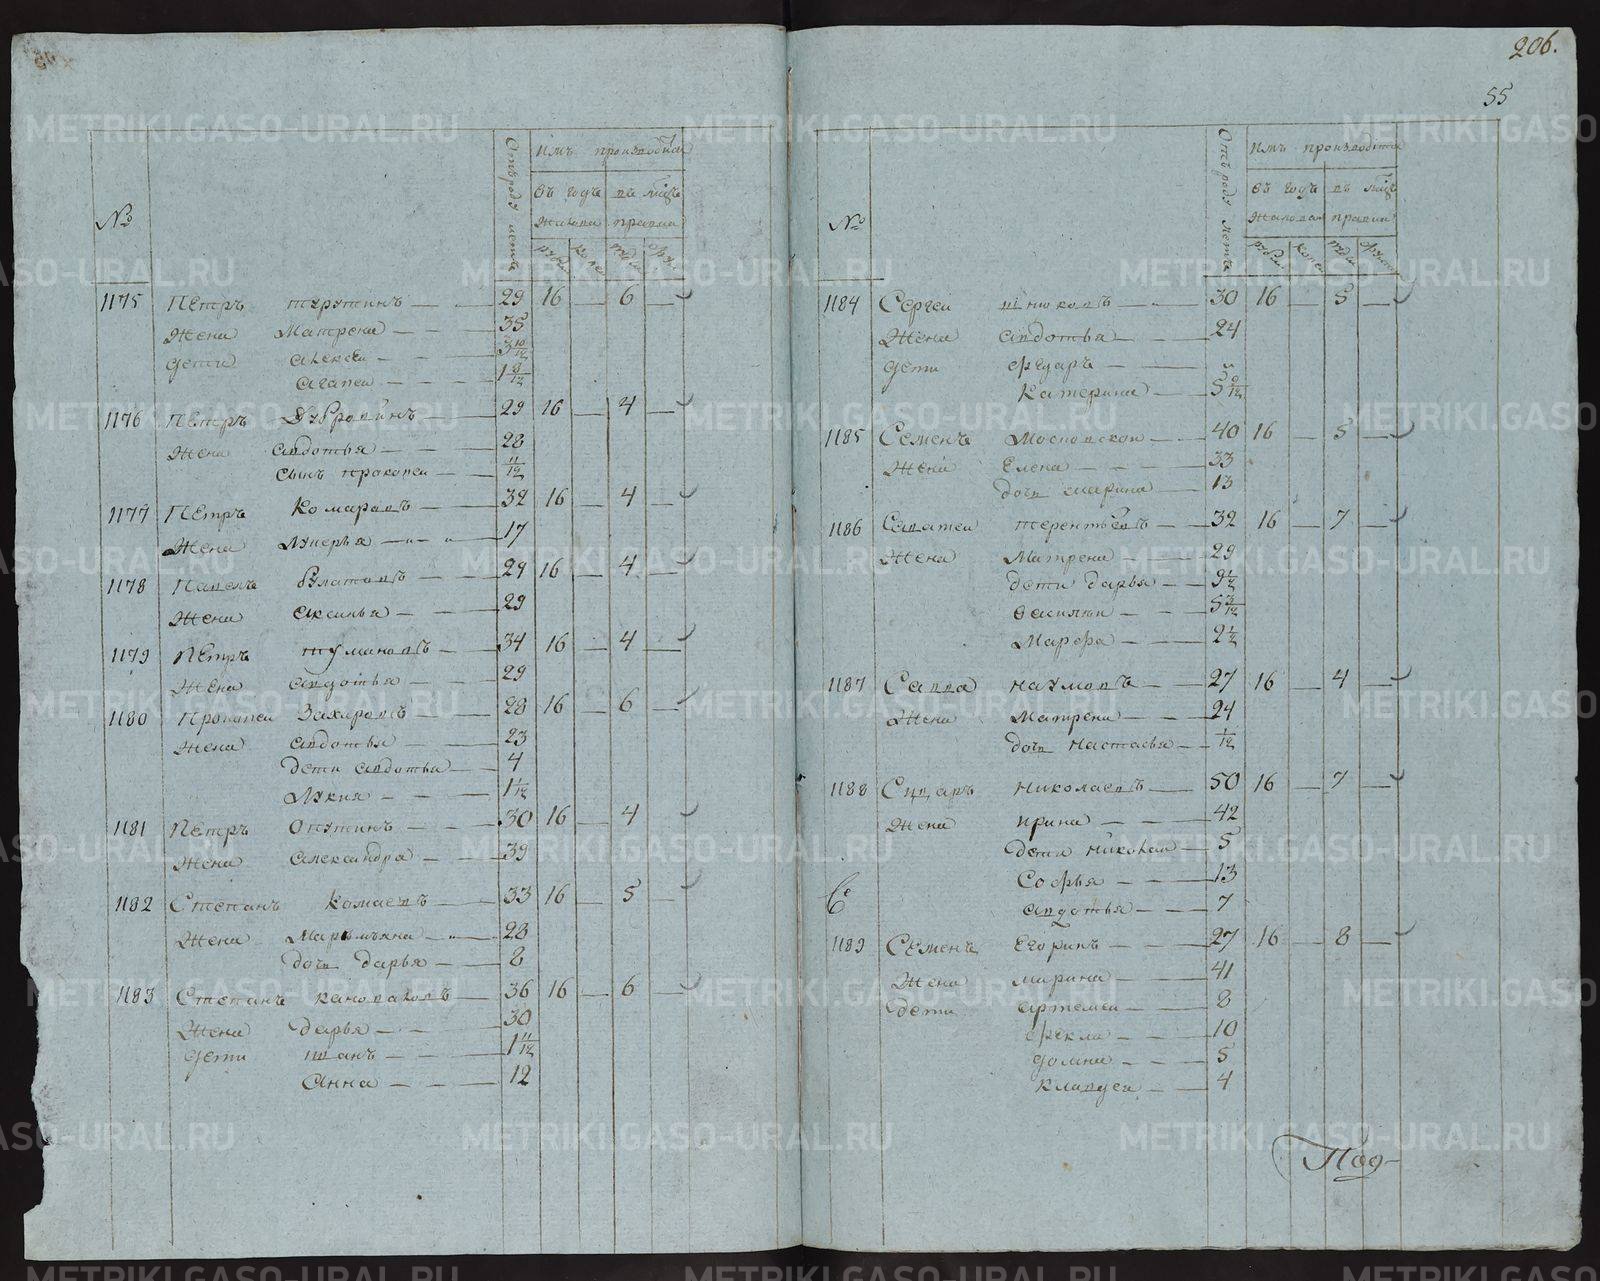 206.
55
№
Отъ роду летъ
Имъ производится
въ годъ
въ мѣсяцъ
жалованья
рубли
копе
пуды
1175 Петръ Турутинъ — — 29 16 — 6 —
Жена Матрена — — 35
дети Алексѣи — — 3 10/12
Агапеи — — — 1 9/12
1176 Петръ Дубровинъ — 29 16 — 4 —
Жена Авдотья — — 28
сынъ Прокопеи — 11/12
1177 Петръ Комаровъ — — 32 16 — 4 —
Жена Лукерья — 17
1178 Павелъ Булатовъ — — 29 16 — 4 —
Жена Аксинья — — 29
1179 Петръ Тумановъ — — 34 16 — 4 —
Жена Авдотья — — 29
1180 Прокопеи Захаровъ — — 28 16 — 6 —
Жена Авдотья — — 23
дети Авдотья — 4
Лукия — — 1 1/12
1181 Петръ Опутинъ — — 30 16 — 4 —
Жена Александра — — 39
1182 Степанъ Комаевъ — — 33 16 — 5 —
Жена Марѣмьяна — 28
дочь Дарья — — 8
1183 Степанъ Коноваловъ — 36 16 — 6 —
Жена Дарья — — 30
дети Иванъ — — 1 11/12
Анна — — — 12
№
Отъ роду летъ
Имъ производится
въ годъ въ мѣсяцъ
жалованья
рубли копе пуды
1184 Сергеи — — 30 16 — 5 —
Жена Авдотья — — 24
дети Федаръ — —
Катерина — 5 9/12
1185 Семенъ Московскои — 40 16 — 5 —
Жена Елена — — — 33
дочь Марина — 13
1186 Саватеи Терентьевъ — 32 16 — 7 —
Жена Матрена — 29
дети Дарья — — 9 1/2
Василѣи — — 5 3/12
Марфа — — — 2 1/2
1187 Савва Наумовъ — — 27 16 — 4 —
Жена Матрена — — 24
дочь Настасья — 1/12
1188 Николаевъ — 50 16 — 7 —
Жена Ирина — — 42
дети Николаи — 5
Софья — — 13
Авдотья — — 7
1189 Семенъ Егоринъ — — 27 16 — 8 —
Жена Марина — 41
дети Артемеи — 8
Фекла — — 10
Домна — — 5
Клавдея — — 4